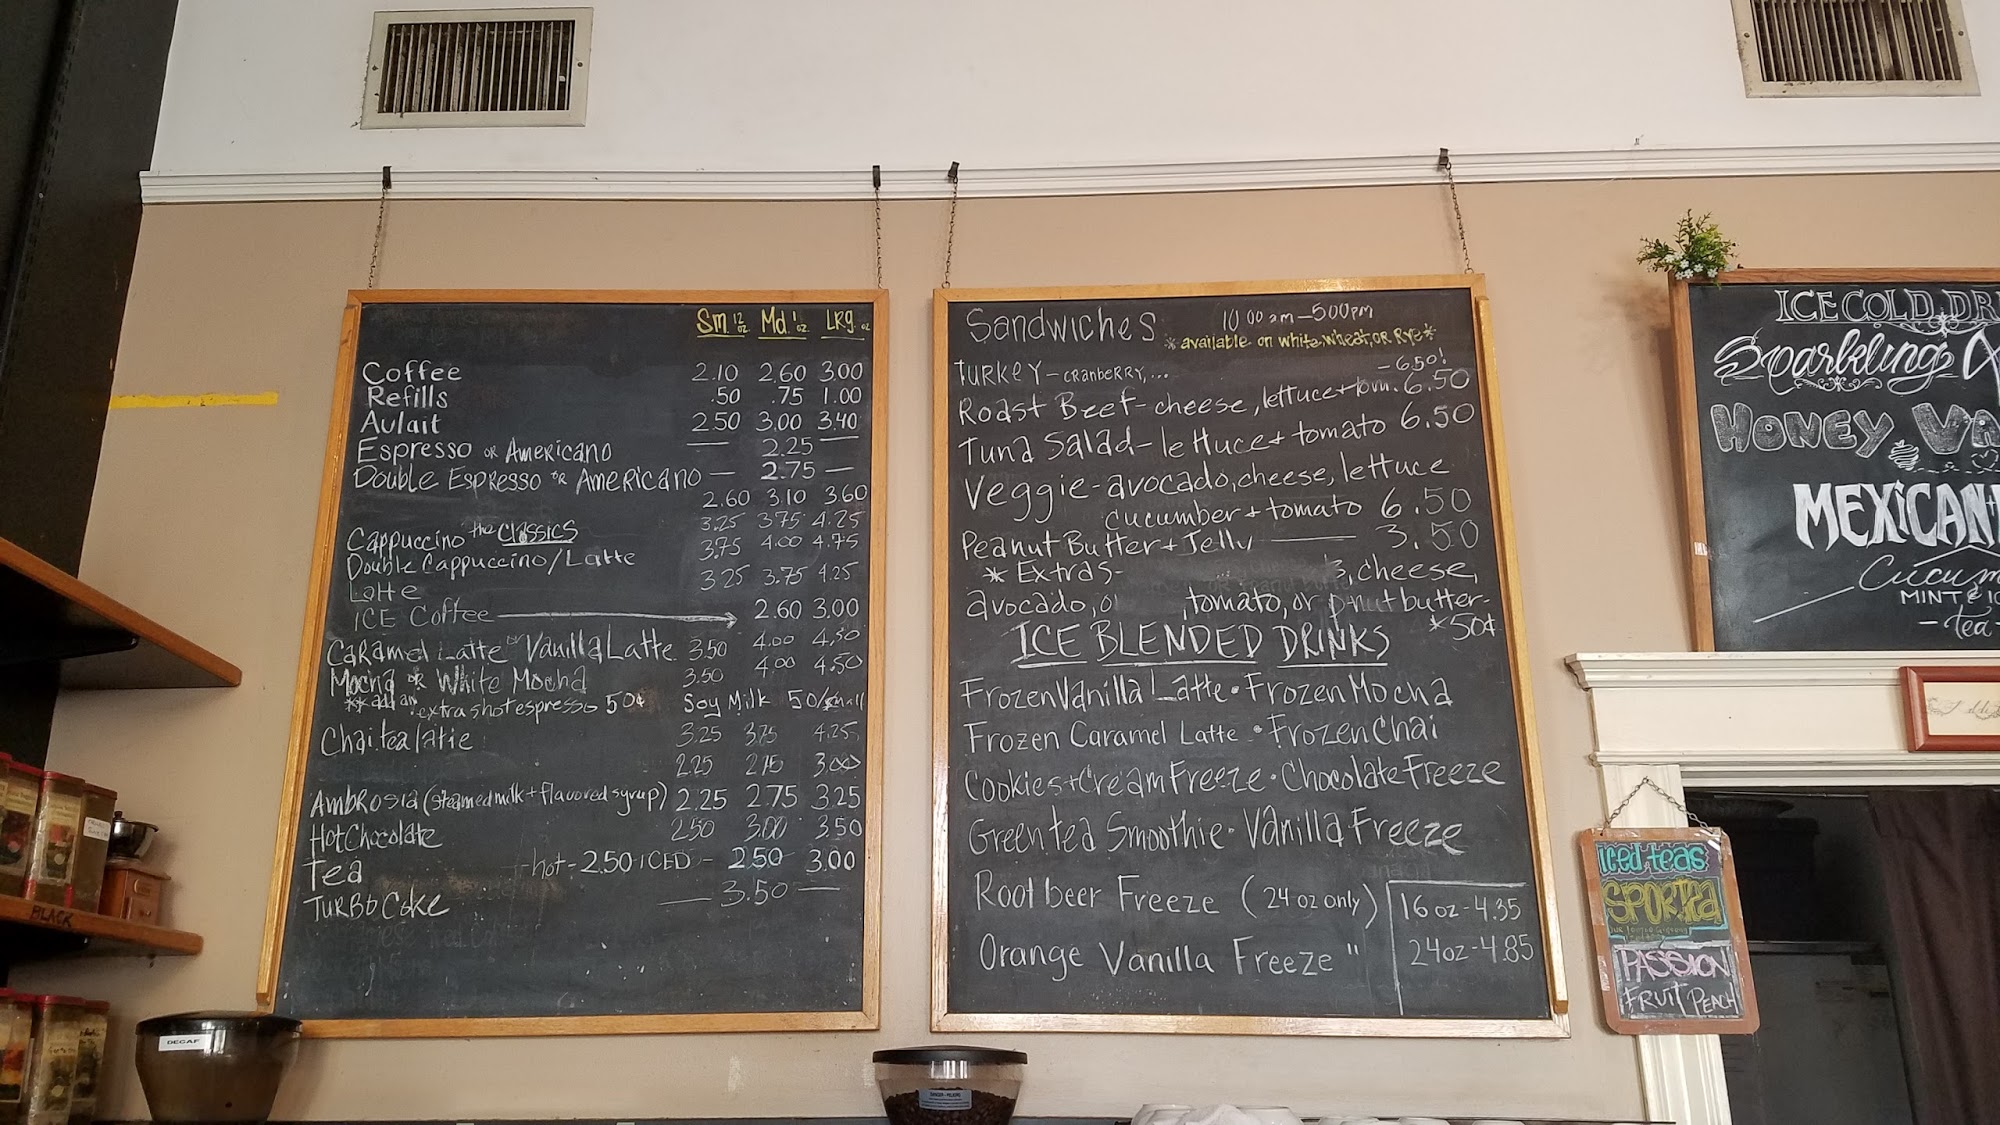 Sm. 12 oz Md. oz. LRg. oz
Coffee 2.10 2.60 3.00
Refills .50 .75 1.00
Aulait 2.50 3.00 3.40
Espresso or Americano — 2.25 —
Double Espresso or Americano — 2.75 —
2.60 3.10 3.60
the Classics
Cappuccino 3.25 3.75 4.25
Double Cappuccino/Latte 3.75 4.00 4.75
Latte 3.25 3.75 4.25
ICE Coffee 2.60 3.00
Caramel Latte or Vanilla Latte 3.50 4.00 4.50
Mocha or White Mocha 3.50 4.00 4.50
**add an extra shot espresso 50¢ Soy Milk 50/small
Chai tea latte 3.25 3.75 4.25
2.25 2.75 3.00
Ambrosia (steamed milk + flavored syrup) 2.25 2.75 3.25
Hot Chocolate 2.50 3.00 3.50
Tea -hot-2.50 ICED - 2.50 3.00
Turbo Coke — 3.50 —
Sandwiches 10 00 am - 500 pm
*available on white, wheat, or Rye*
Turkey - cranberry,... - 6.50!
Roast Beef - cheese, lettuce + tom. 6.50
Tuna Salad - lettuce + tomato 6.50
Veggie - avocado, cheese, lettuce
cucumber + tomato 6.50
Peanut Butter + Jelly — 3.50
* Extras- cheese,
avocado, tomato, or p-nut butter-
*50¢
ICE BLENDED DRINKS
Frozen Vanilla Latte • Frozen Mocha
Frozen Caramel Latte • Frozen Chai
Cookies + Cream Freeze • Chocolate Freeze
Green tea Smoothie • Vanilla Freeze
Root beer Freeze (24 oz only)
Orange Vanilla Freeze "
16 oz - 4.35
24oz - 4.85
ICE COLD
Sparkling
HONEY
MEXICAN
MINT
- tea -
iced teas
SPORTea
PASSION
FRUIT PEACH
BLACK
DECAF